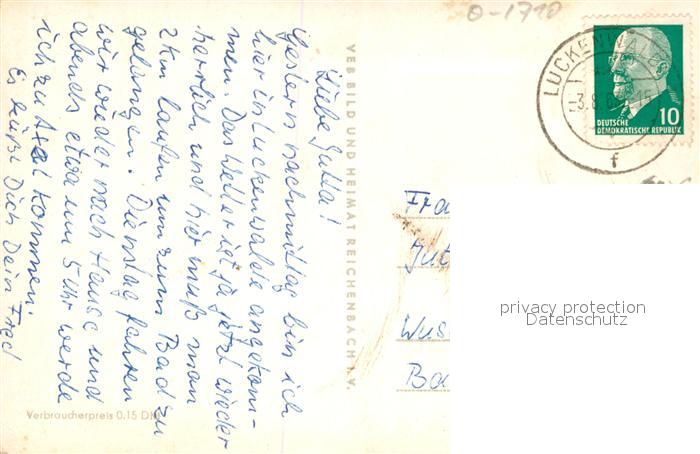 Liebe Jutta!
Gestern nachmittag bin ich
hier in Luckenwalde angekom-
men. Das Wetter ist ja jetzt wieder
herrlich und hier muß man
2 km laufen um zum Bad zu
gelangen. Dienstag fahren
wir wieder nach Hause und
abends etwa um 5 Uhr werde
ich zu Axel kommen.
Es küßt Dich Dein Fred
VEB BILD UND HEIMAT REICHENBACH I. V.
Verbraucherpreis 0.15 DM
0-1710
LUCKENWAL
-3.8.6
15
f
10
DEUTSCHE
DEMOKRATISCHE REPUBLIK
Fra
Jut
Wus
Ba
privacy protection
Datenschutz